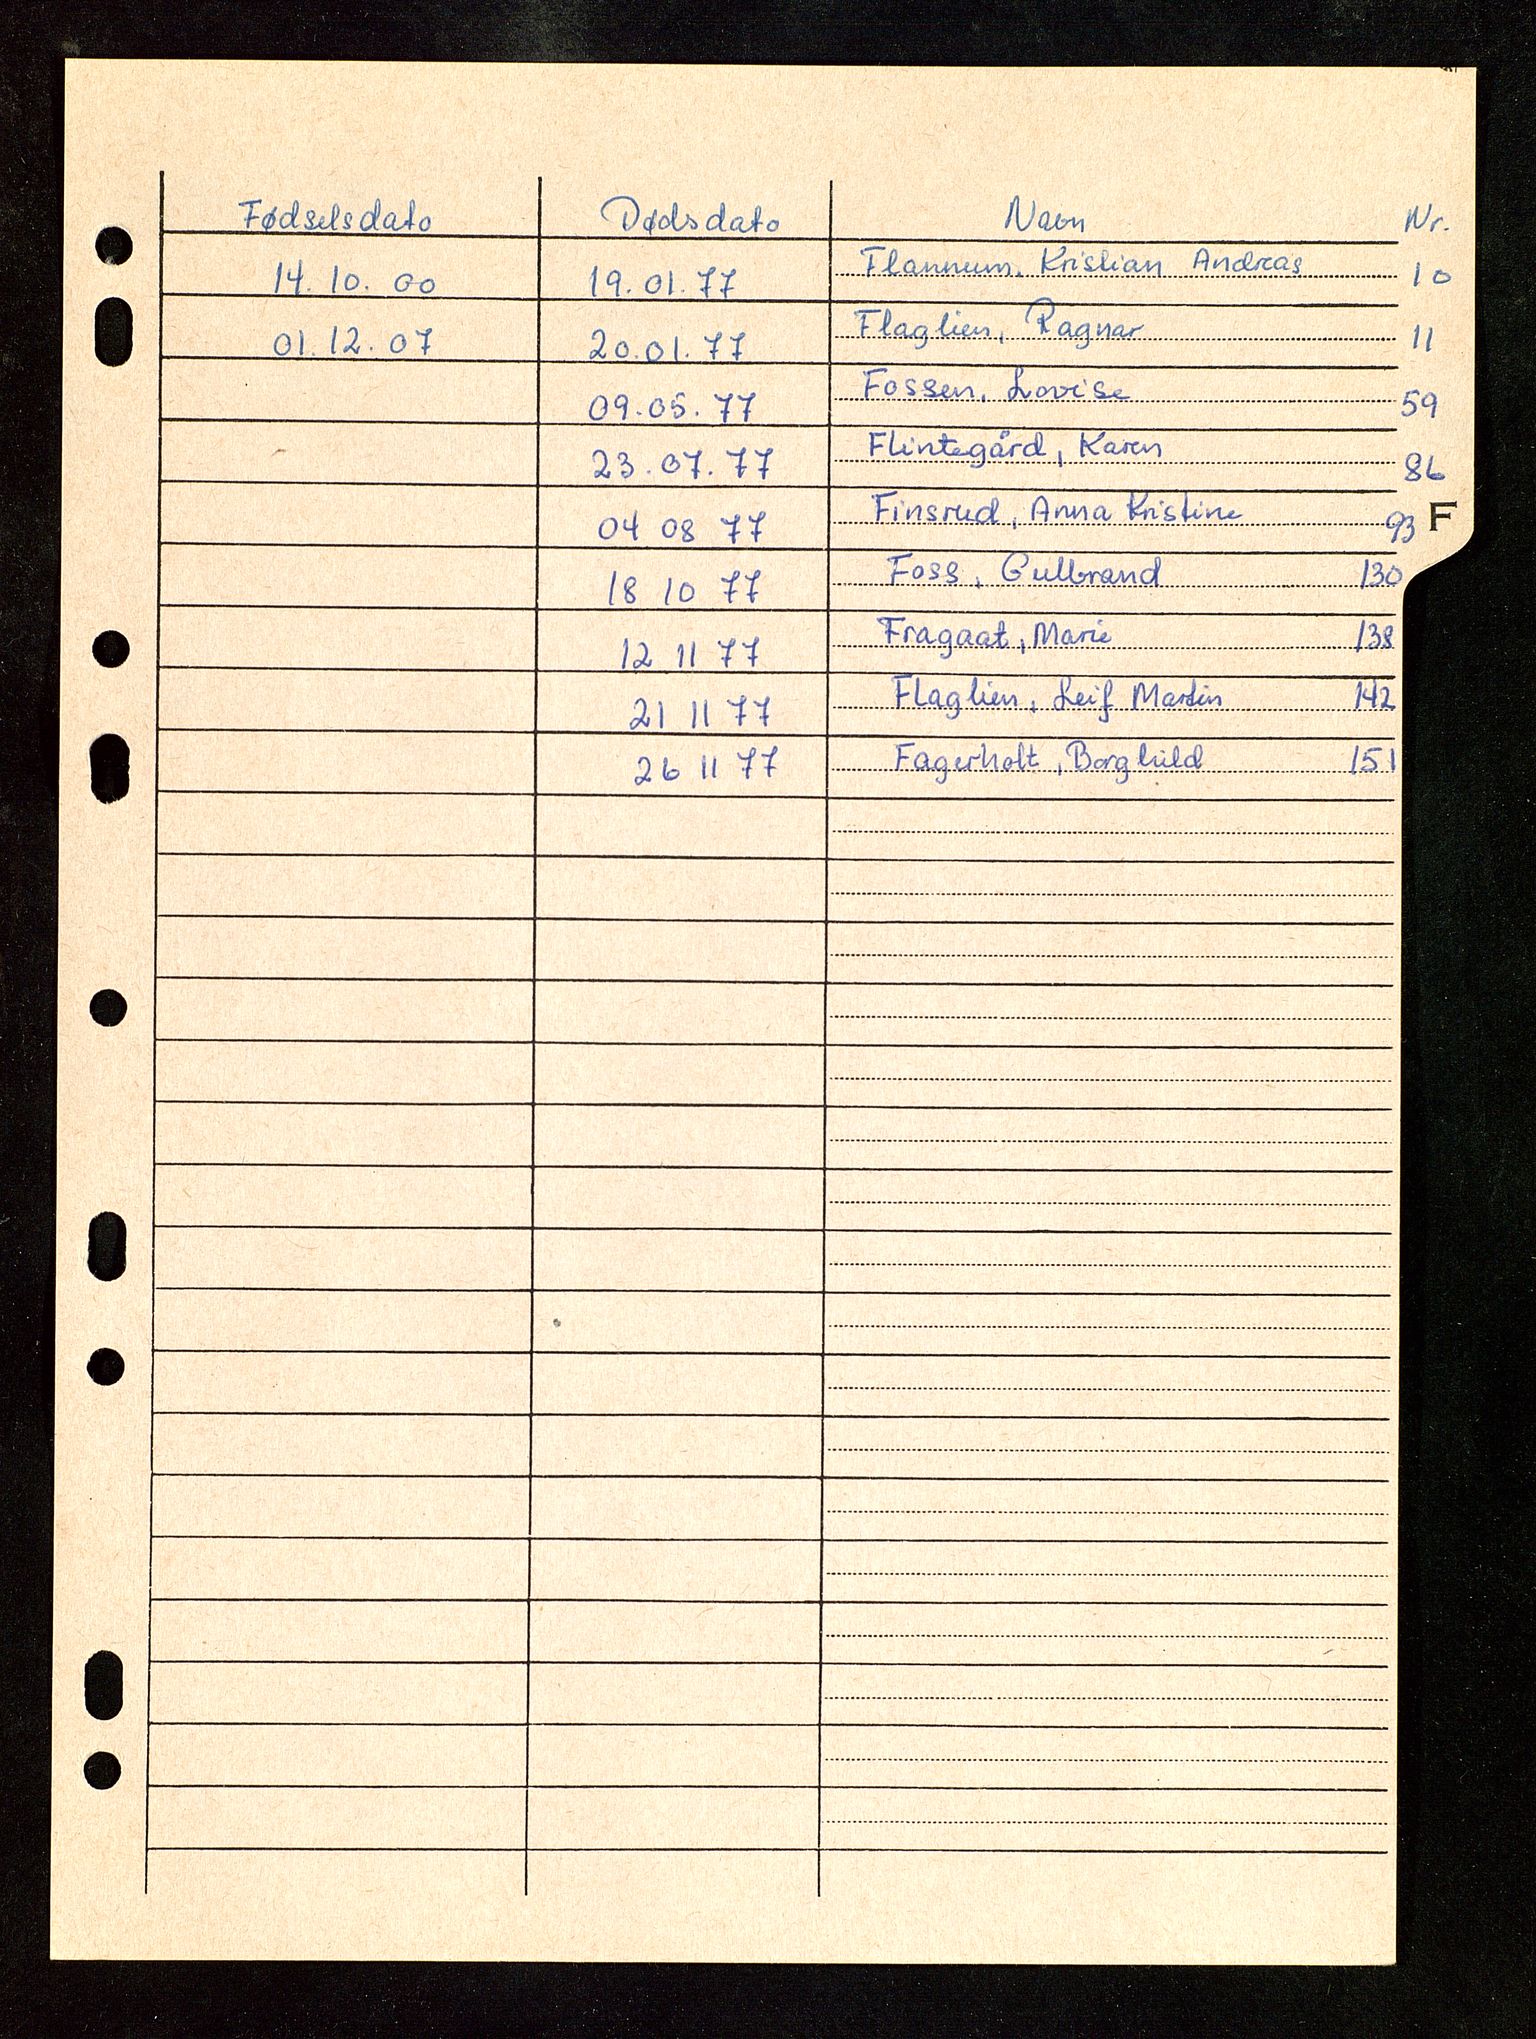 Fødselsdato Dødsdato Navn Nr.
14. 10. 00 19. 01. 77 Flannum, Kristian Andreas 10
01. 12. 07 20. 01. 77 Flaglien, Ragnar 11
09. 05. 77 Fossen, Lovise 59
23. 07. 77 Flintegård, Karen 86
04 08 77 Finsrud, Anna Kristine 93 F
18 10 77 Foss, Gulbrand 130
12 11 77 Fragaat, Marie 138
21 11 77 Flaglien, Leif Martin 142
26 11 77 Fagerholt, Borghild 151